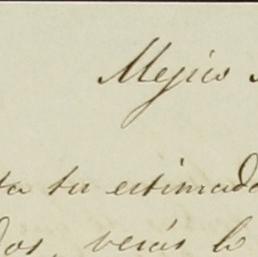 Mejico
ta tu estimada
dos, verás lo